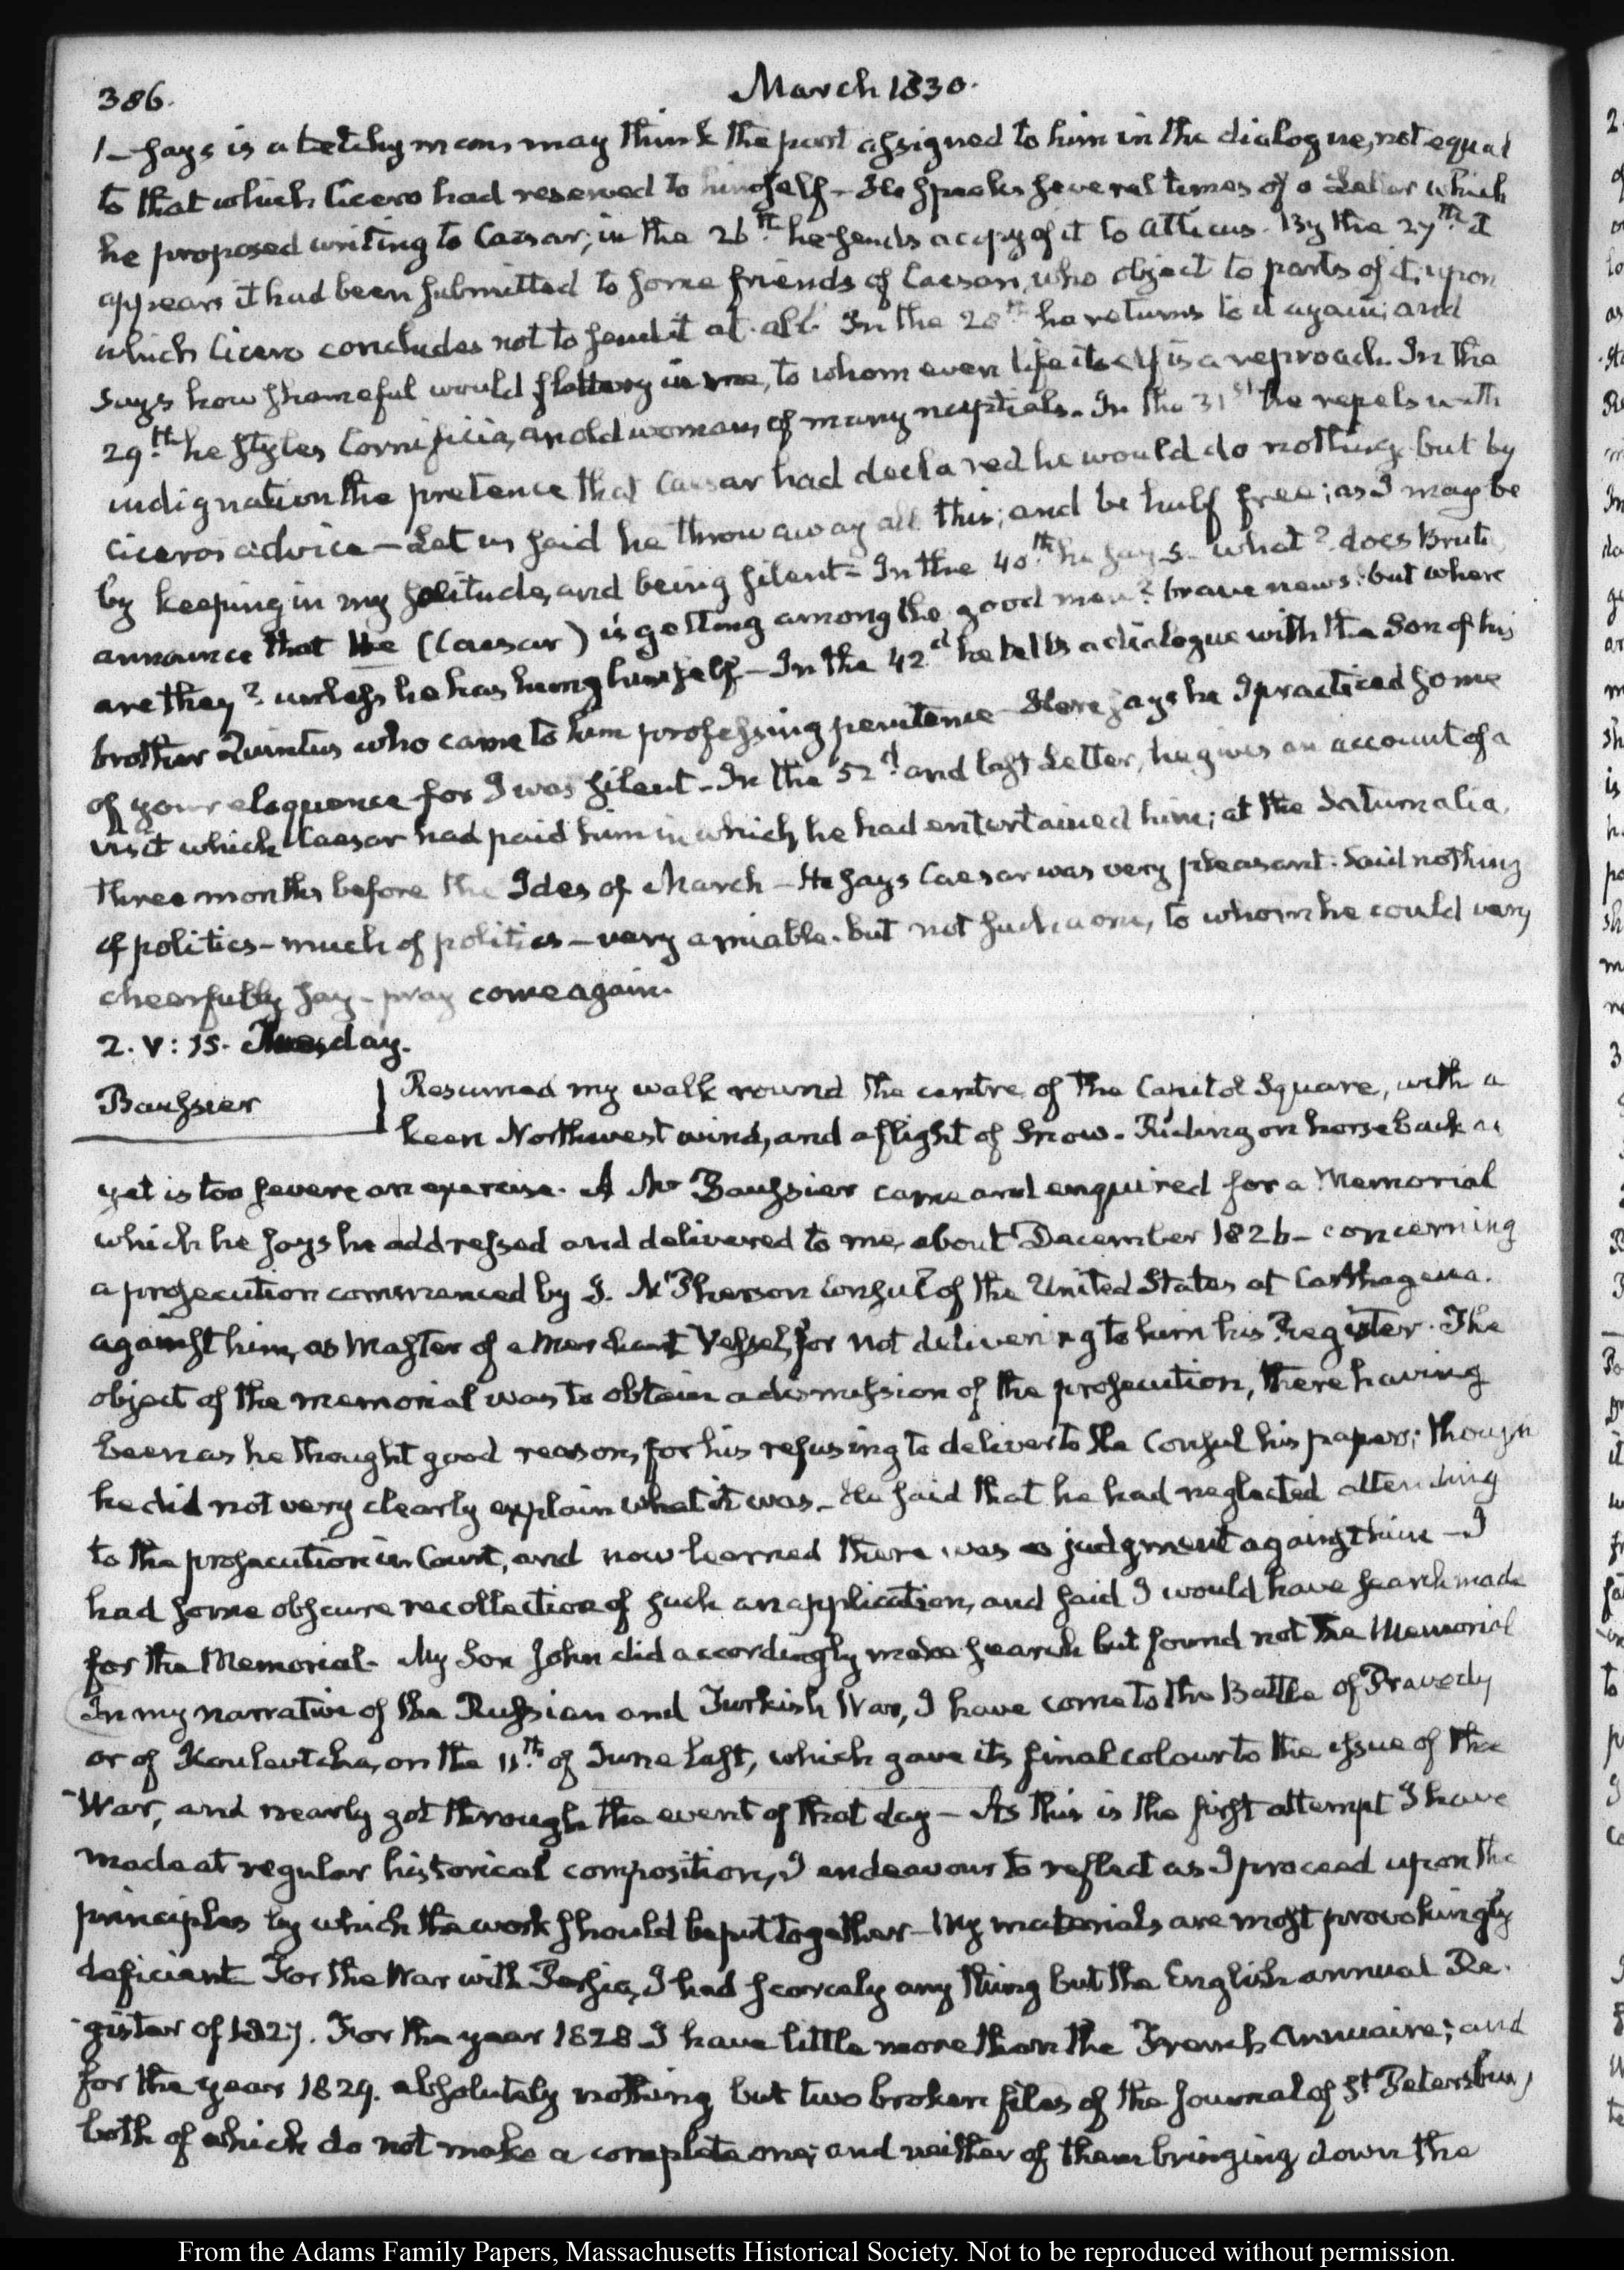 386.
March 1830.
1 — says is a tetchy man, may think the part assigned to him in the dialogue, not equal
to that which Cicero had reserved to himself — He speaks several times of a Letter which
he proposed writing to Caesar; in the 26th. he sends a copy of it to Atticus. By the 27th. it
appears it had been submitted to some friends of Caesar, who object to parts of it, upon
which Cicero concludes not to send it at all. In the 28th he returns to it again; and
says how shameful would flattery in me, to whom even life itself is a reproach. In the
29th. he styles Cornificia, an old woman, of many nuptials. In the 31st he repels with
indignation the pretence that Caesar had declared he would do nothing but by
Cicero's advice — Let us said he throw away all this; and be half free; as I may be
by keeping in my solitude, and being silent — In the 40th. he says — what? does Brutus
announce that he (Caesar) is getting among the good men? brave news! but where
are they? unless he has hung himself — In the 42d. he tells a dialogue with the Son of his
brother Quintus who came to him professing penitence — Here says he I practiced some
of your eloquence for I was silent — In the 52d. and last Letter, he gives an account of a
visit which Caesar had paid him in which he had entertained him; at the Saturnalia,
three months before the Ides of March — He says Caesar was very pleasant. Said nothing
of politics — much of politics — very amiable. but not such a one, to whom he could very
cheerfully say — pray come again.
2. V: 15. Tuesday.
Baussier
Resumed my walk round the centre of the Capitol Square, with a
keen Northwest wind, and a flight of Snow. Riding on horseback as
yet is too severe an exercise. A Mr Baussier came and enquired for a Memorial
which he says he addressed and delivered to me, about December 1826 — concerning
a prosecution commenced by J. McPherson Consul of the United States at Carthagena.
against him, as Master of a Merchant Vessel, for not delivering to him his Register. The
object of the memorial was to obtain a dismission of the prosecution, there having
been as he thought good reason, for his refusing to deliver to the Consul his papers; though
he did not very clearly explain what it was. He said that he had neglected attending
to the prosecution in Court, and now learned there was a judgment against him — I
had some obscure recollection of such an application, and said I would have search made
for the Memorial. My Son John did accordingly make search but found not the Memorial
In my narrative of the Russian and Turkish War, I have come to the Battle of Pravody
or of Koulevtcha, on the 11th. of June last, which gave its final colour to the issue of the
War, and nearly got through the event of that day — As this is the first attempt I have
made at regular historical composition, I endeavour to reflect as I proceed upon the
principles by which the work should be put together — My materials are most provokingly
deficient For the War with Persia, I had scarcely any thing but the English annual Re-
gister of 1827. For the year 1828 I have little more than the French Annuaire; and
for the year 1829. absolutely nothing but two broken files of the Journal of St Petersburg
both of which do not make a complete one; and neither of them bringing down the
From the Adams Family Papers, Massachusetts Historical Society. Not to be reproduced without permission.